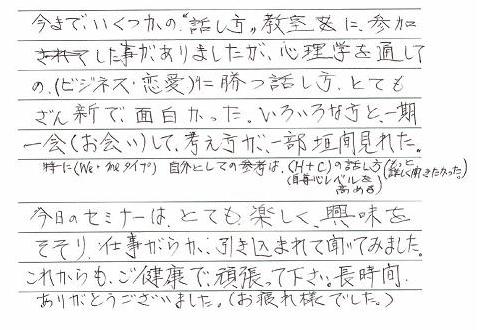 今までいくつかの"話し方"教室に、参加
した事がありましたが、心理学を通して
の、(ビジネス・恋愛)に勝つ話し方、とても
ざん新で、面白かった。いろいろな方と、一期
一会(お会い)して、考え方が、一部垣間見れた。
特に(We・meタイプ) 自分としての参考は、(H+C)の話し方(もっと詳しく聞きたかった。)
(自尊心レベルを
高める)
今日のセミナーは、とても、楽しく、興味を
そそり、仕事がらか、引き込まれて聞いてみました。
これからも、ご健康で、頑張って下さい。長時間、
ありがとうございました。(お疲れ様でした。)